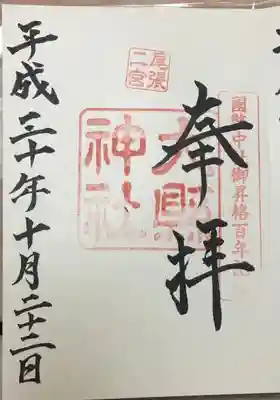 國幣中社御昇格百年
奉拝
尾張
二宮
大縣
神社
平成三十年十月二十二日